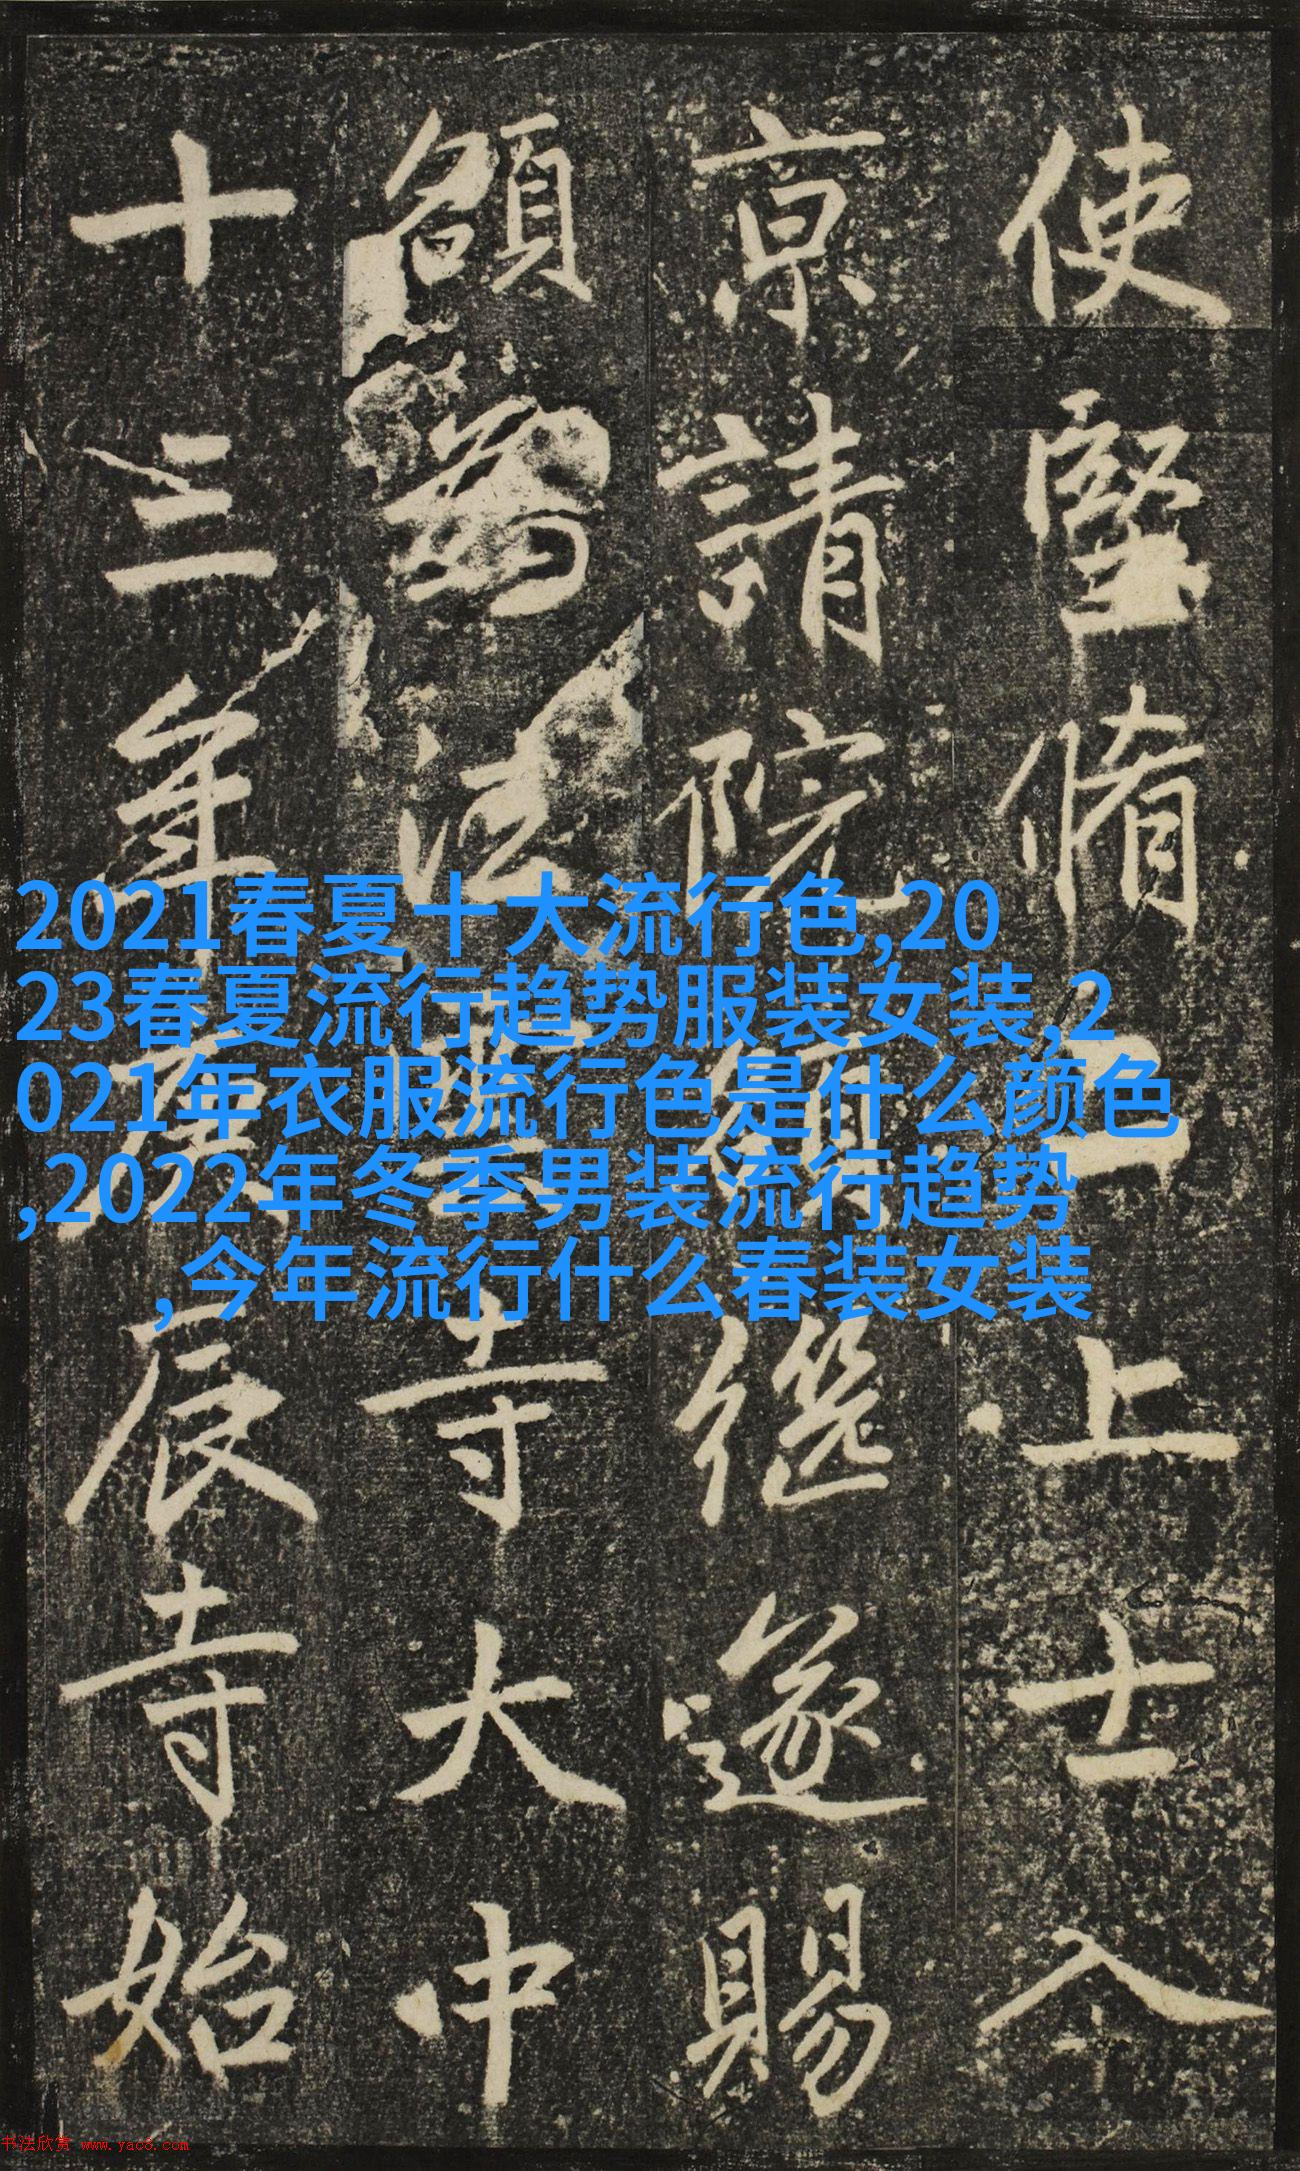 使堅脩二上士入
京請院額繼遂賜
額為法寺大中
十三年庚辰寺始
2021春夏十大流行色,20
23春夏流行趋势服装女装,2
021年衣服流行色是什么颜色
,2022年冬季男装流行趋势
,今年流行什么春装女装
书法欣赏 www.yac8.com